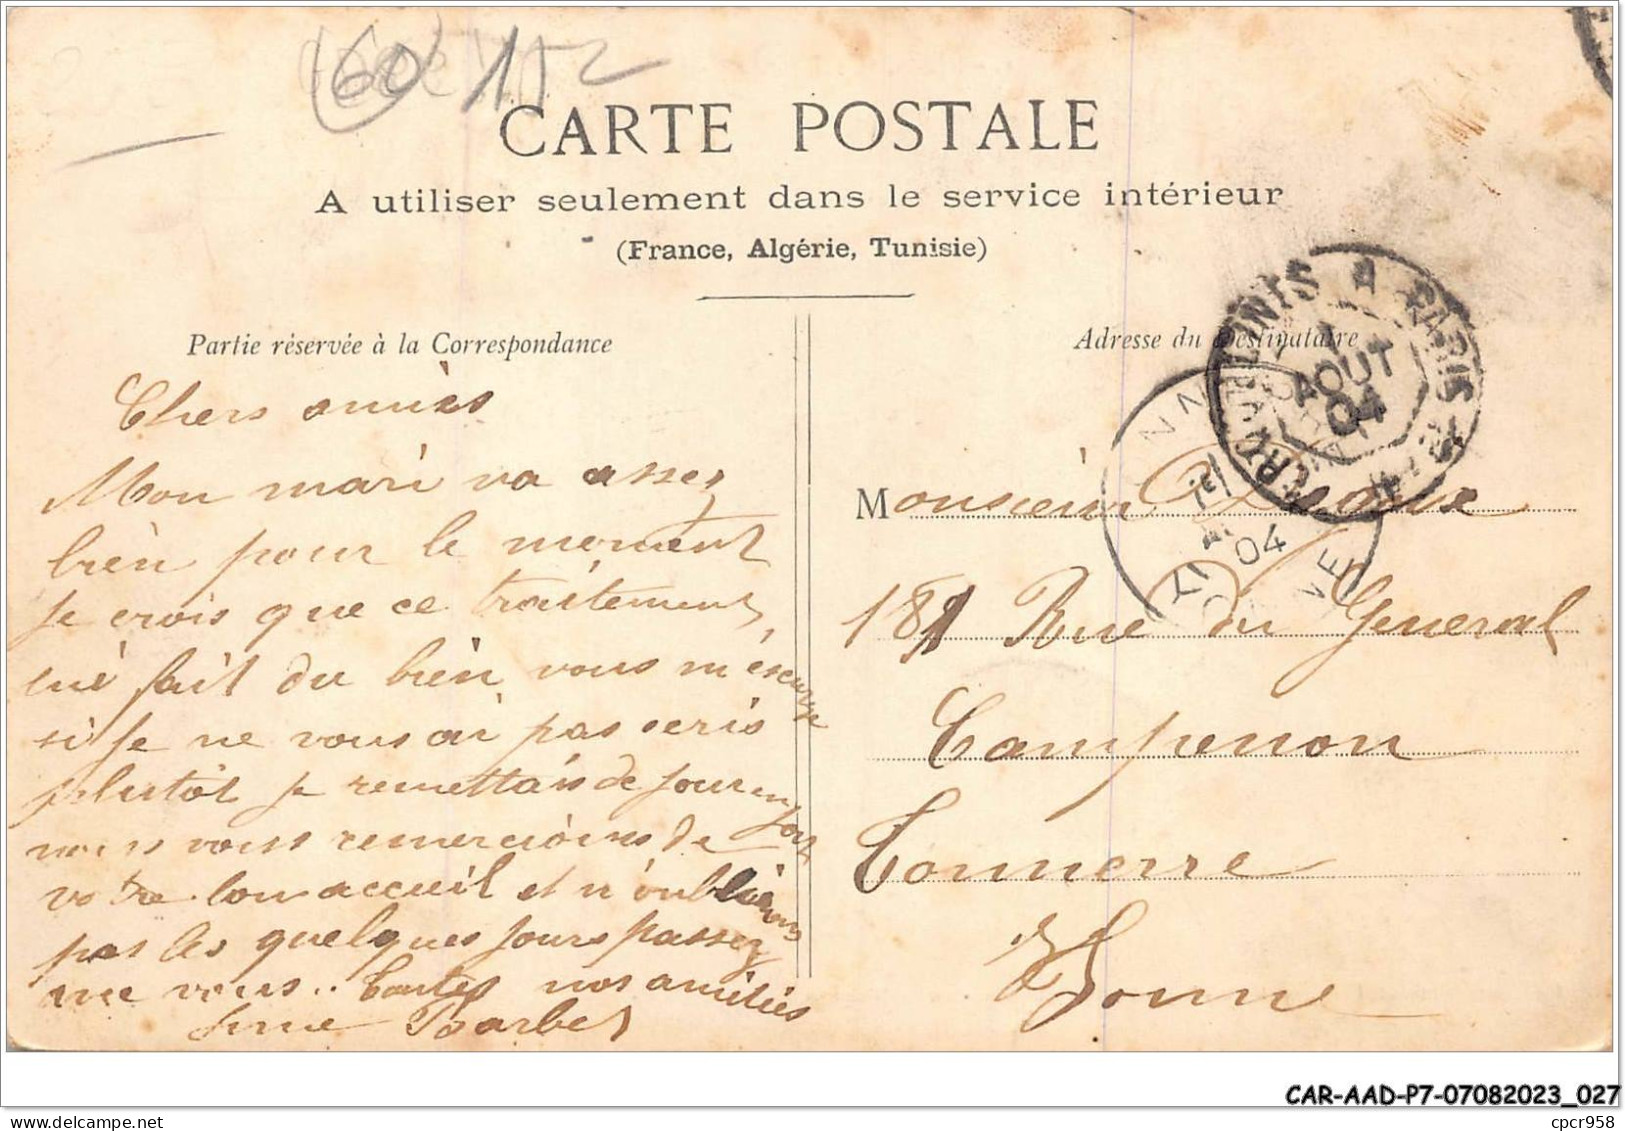 (60) 152
CARTE POSTALE
A utiliser seulement dans le service intérieur
(France, Algérie, Tunisie)
Partie réservée à la Correspondance
Adresse du Destinataire
Chers amies
Mon mari va assez
bien pour le moment
je crois que ce traitement
lui fait du bien, vous m'éscuse
si je ne vous ai pas
plutôt je remettais de jour en jour
nous vous remercions de
votre bon accueil et n'oublierons
pas les quelques jours passez
avec vous.. Toutes nos amitiés
Barbes
Monsieur
181 Rue du General
Campenon
Tonnerre
Yonne
A PARIS
AOUT
04
YONNE
04
CAR-AAD-P7-07082023_027
cpcr958